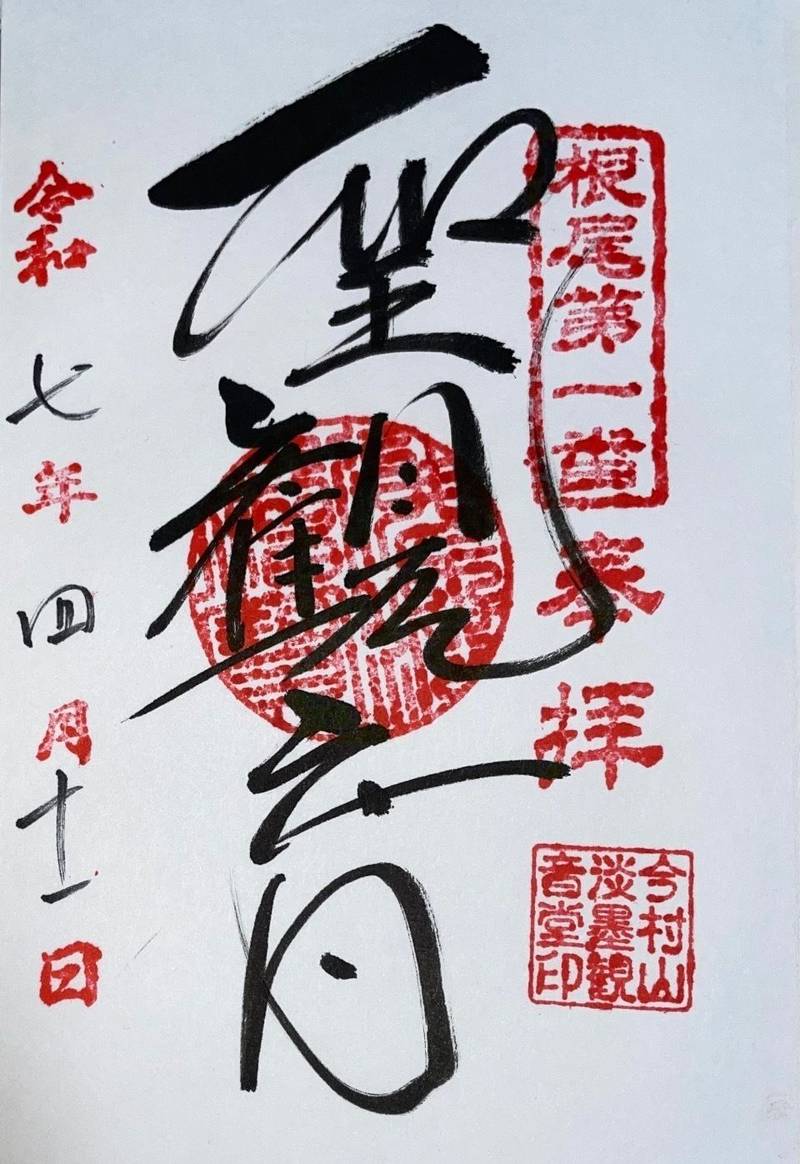 根尾第一番
奉拝
今村山
淡墨観
音堂印
聖觀音
令和七年四月十一日